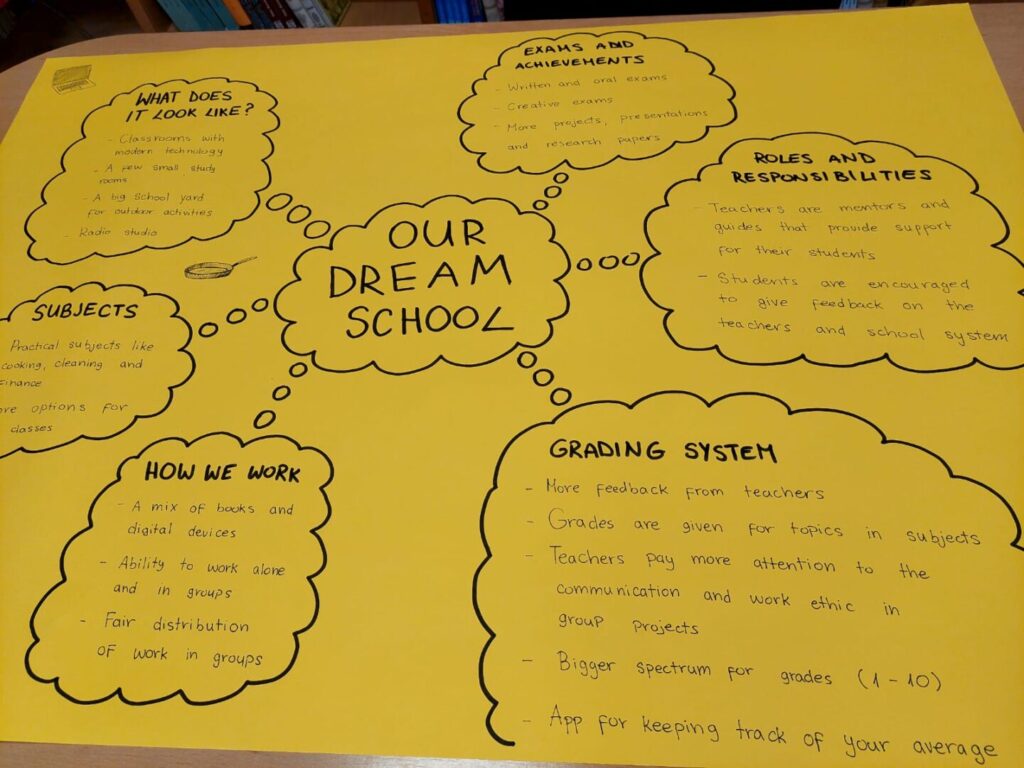 OUR
DREAM
SCHOOL
WHAT DOES
IT LOOK LIKE?
- Classrooms with
modern technology
- A few small study
rooms
- A big school yard
for outdoor activities
- Radio studio
EXAMS AND
ACHIEVEMENTS
- Written and oral exams
- Creative exams
- More projects, presentations
and research papers
ROLES AND
RESPONSIBILITIES
- Teachers are mentors and
guides that provide support
for their students
- Students are encouraged
to give feedback on the
teachers and school system
SUBJECTS
Practical subjects like
cooking, cleaning and
finance
options for
classes
HOW WE WORK
- A mix of books and
digital devices
- Ability to work alone
and in groups
- Fair distribution
of work in groups
GRADING SYSTEM
- More feedback from teachers
- Grades are given for topics in subjects
- Teachers pay more attention to the
communication and work ethic in
group projects
- Bigger spectrum for grades (1-10)
- App for keeping track of your average